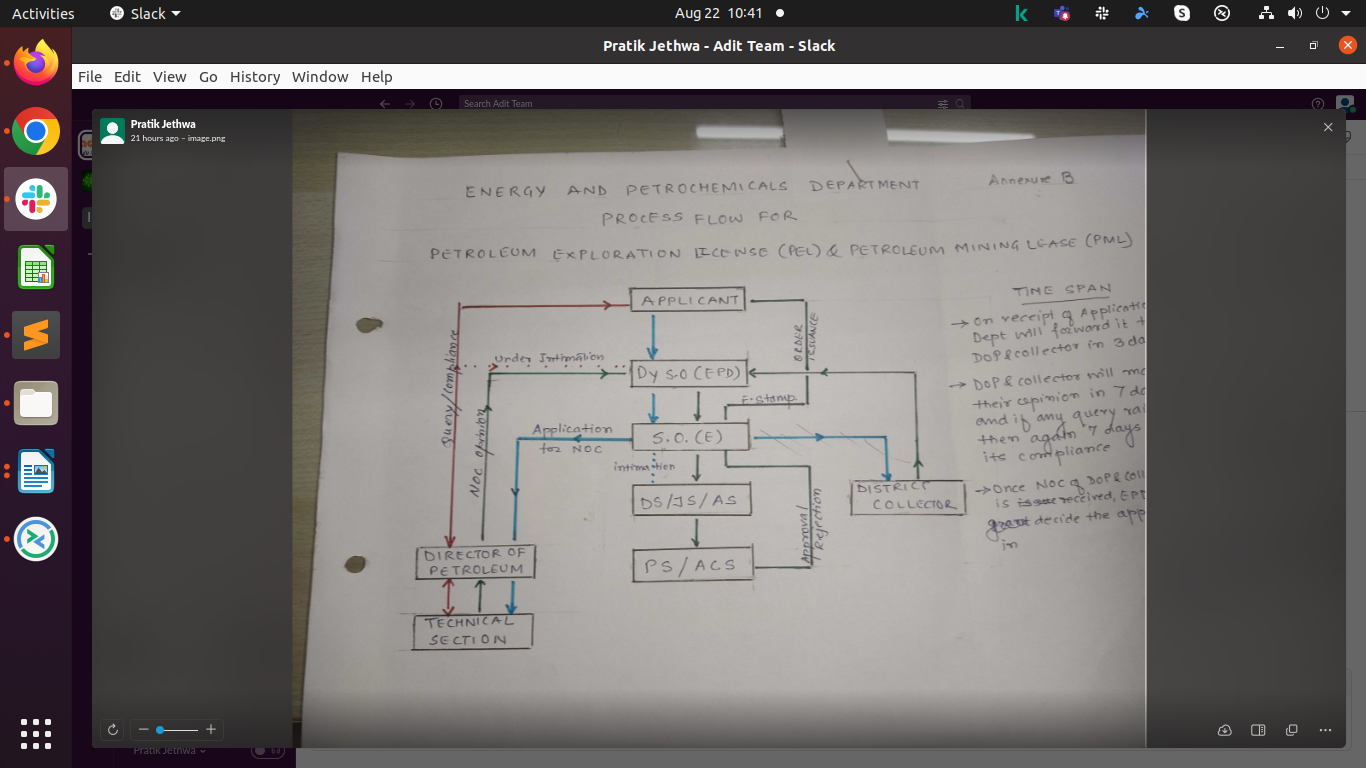 Activities
Slack
Aug 22 10:41
Pratik Jethwa - Adit Team - Slack
File Edit View Go History Window Help
Search Adit Team
Pratik Jethwa
21 hours ago – image.png
Annexure B
ENERGY AND PETROCHEMICALS DEPARTMENT
PROCESS FLOW FOR
PETROLEUM EXPLORATION LICENSE (PEL) & PETROLEUM MINING LEASE (PML)
APPLICANT
ORDER
ISSUANCE
Query/compliance
Under Intimation
Dy S.O (EPD)
E-stamp
NOC opinion
Application
for NOC
S.O. (E)
intimation
DS/JS/AS
DISTRICT
COLLECTOR
Approval/
Rejection
PS/ACS
DIRECTOR OF
PETROLEUM
TECHNICAL
SECTION
TIME SPAN
→ On receipt of Applicatio
Dept will forward it t
DOP & collector in 3 da
→ DOP & collector will
their opinion in 7 da
and if any query rai
then again 7 days
its compliance
→ Once NOC of DOP & coll
is issue received, EP
grant decide the app
in
Pratik Jethwa